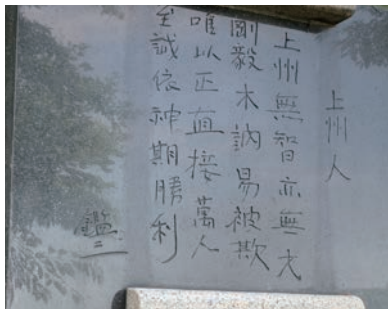 上州人
上州無智亦無才
剛毅木訥易被欺
唯以正直接萬人
至誠依神期勝利
鑑三